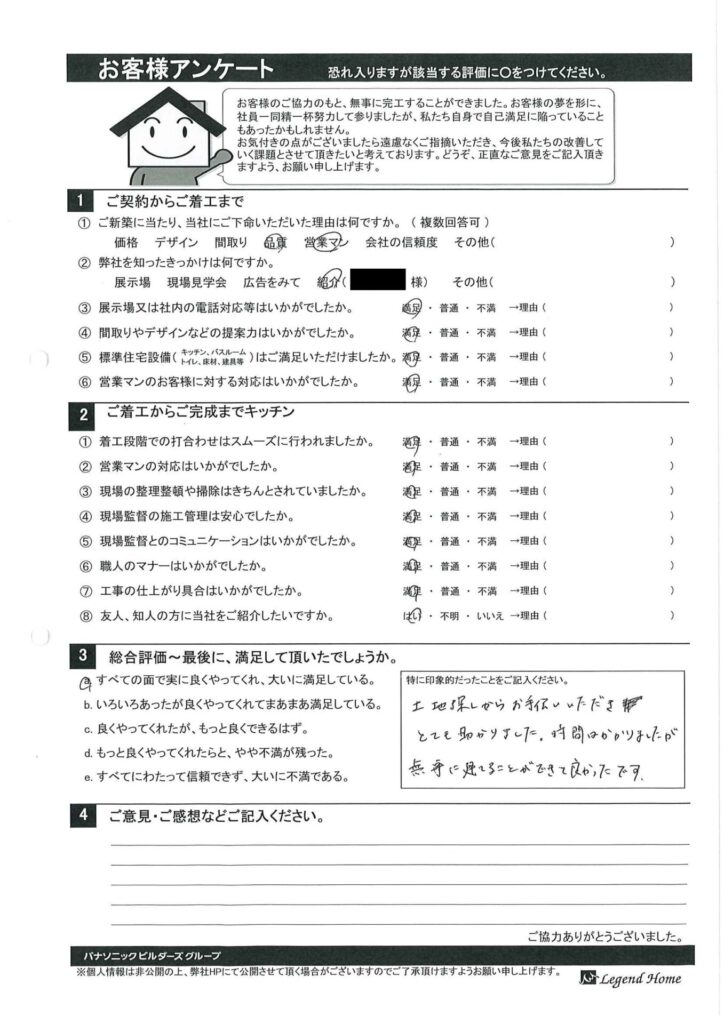 お客様アンケート 恐れ入りますが該当する評価に〇をつけてください。
お客様のご協力のもと、無事に完工することができました。お客様の夢を形に、
社員一同精一杯努力して参りましたが、私たち自身で自己満足に陥っていること
もあったかもしれません。
お気付きの点がございましたら遠慮なくご指摘いただき、今後私たちの改善して
いく課題とさせて頂きたいと考えております。どうぞ、正直なご意見をご記入頂き
ますよう、お願い申し上げます。
1 ご契約からご着工まで
① ご新築に当たり、当社にご下命いただいた理由は何ですか。（ 複数回答可 ）
価格 デザイン 間取り 品質 営業マン 会社の信頼度 その他( )
② 弊社を知ったきっかけは何ですか。
展示場 現場見学会 広告をみて 紹介( 様） その他( )
③ 展示場又は社内の電話対応等はいかがでしたか。 満足 ・ 普通 ・ 不満 →理由 ( )
④ 間取りやデザインなどの提案力はいかがでしたか。 満足 ・ 普通 ・ 不満 →理由 ( )
⑤ 標準住宅設備( キッチン、バスルーム トイレ、床材、建具等 )はご満足いただけましたか。 満足 ・ 普通 ・ 不満 →理由 ( )
⑥ 営業マンのお客様に対する対応はいかがでしたか。 満足 ・ 普通 ・ 不満 →理由 ( )
2 ご着工からご完成までキッチン
① 着工段階での打合わせはスムーズに行われましたか。 満足 ・ 普通 ・ 不満 →理由 ( )
② 営業マンの対応はいかがでしたか。 満足 ・ 普通 ・ 不満 →理由 ( )
③ 現場の整理整頓や掃除はきちんとされていましたか。 満足 ・ 普通 ・ 不満 →理由 ( )
④ 現場監督の施工管理は安心でしたか。 満足 ・ 普通 ・ 不満 →理由 ( )
⑤ 現場監督とのコミュニケーションはいかがでしたか。 満足 ・ 普通 ・ 不満 →理由 ( )
⑥ 職人のマナーはいかがでしたか。 満足 ・ 普通 ・ 不満 →理由 ( )
⑦ 工事の仕上がり具合はいかがでしたか。 満足 ・ 普通 ・ 不満 →理由 ( )
⑧ 友人、知人の方に当社をご紹介したいですか。 はい ・ 不明 ・ いいえ →理由 ( )
3 総合評価～最後に、満足して頂いたでしょうか。
a. すべての面で実に良くやってくれ、大いに満足している。
b. いろいろあったが良くやってくれてまあまあ満足している。
c. 良くやってくれたが、もっと良くできるはず。
d. もっと良くやってくれたらと、やや不満が残った。
e. すべてにわたって信頼できず、大いに不満である。
特に印象的だったことをご記入ください。
土地探しからお手伝いいただき
とても助かりました。時間はかかりましたが
無事に建てることができて良かったです。
4 ご意見・ご感想などご記入ください。
ご協力ありがとうございました。
パナソニック ビルダーズ グループ
※個人情報は非公開の上、弊社HPにて公開させて頂く場合がございますのでご了承頂けますようお願い申し上げます。
Legend Home